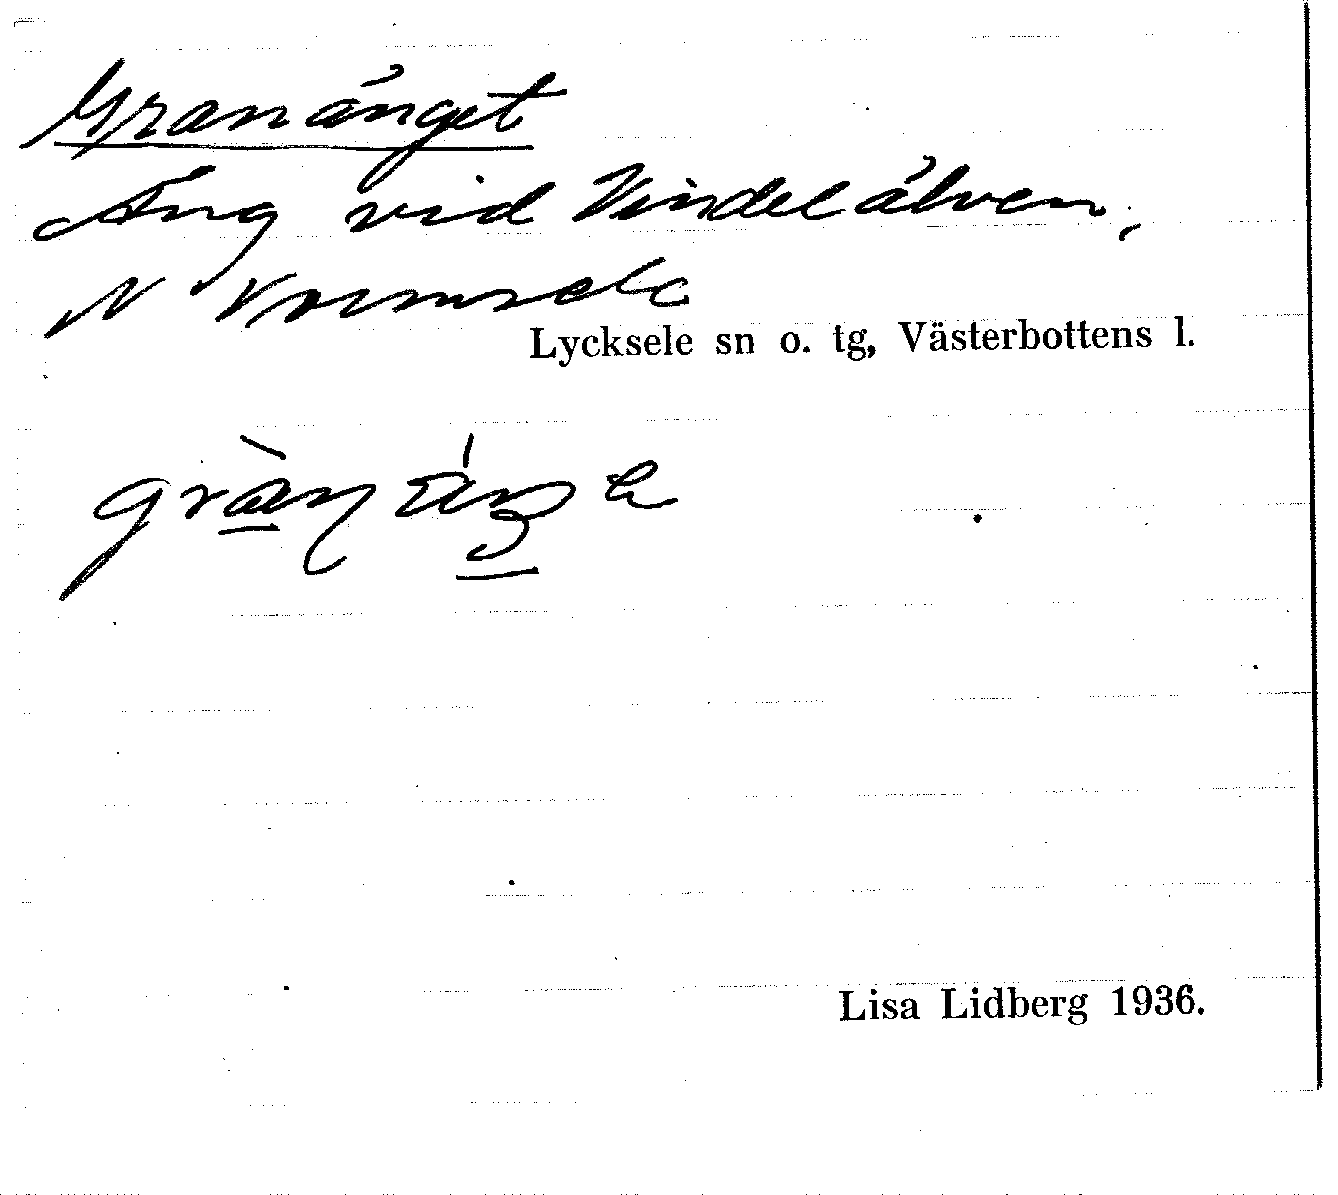 Granänget
Äng vid Vindelälven,
N Vormsele
Lycksele sn o. tg, Västerbottens l.
Lisa Lidberg 1936.